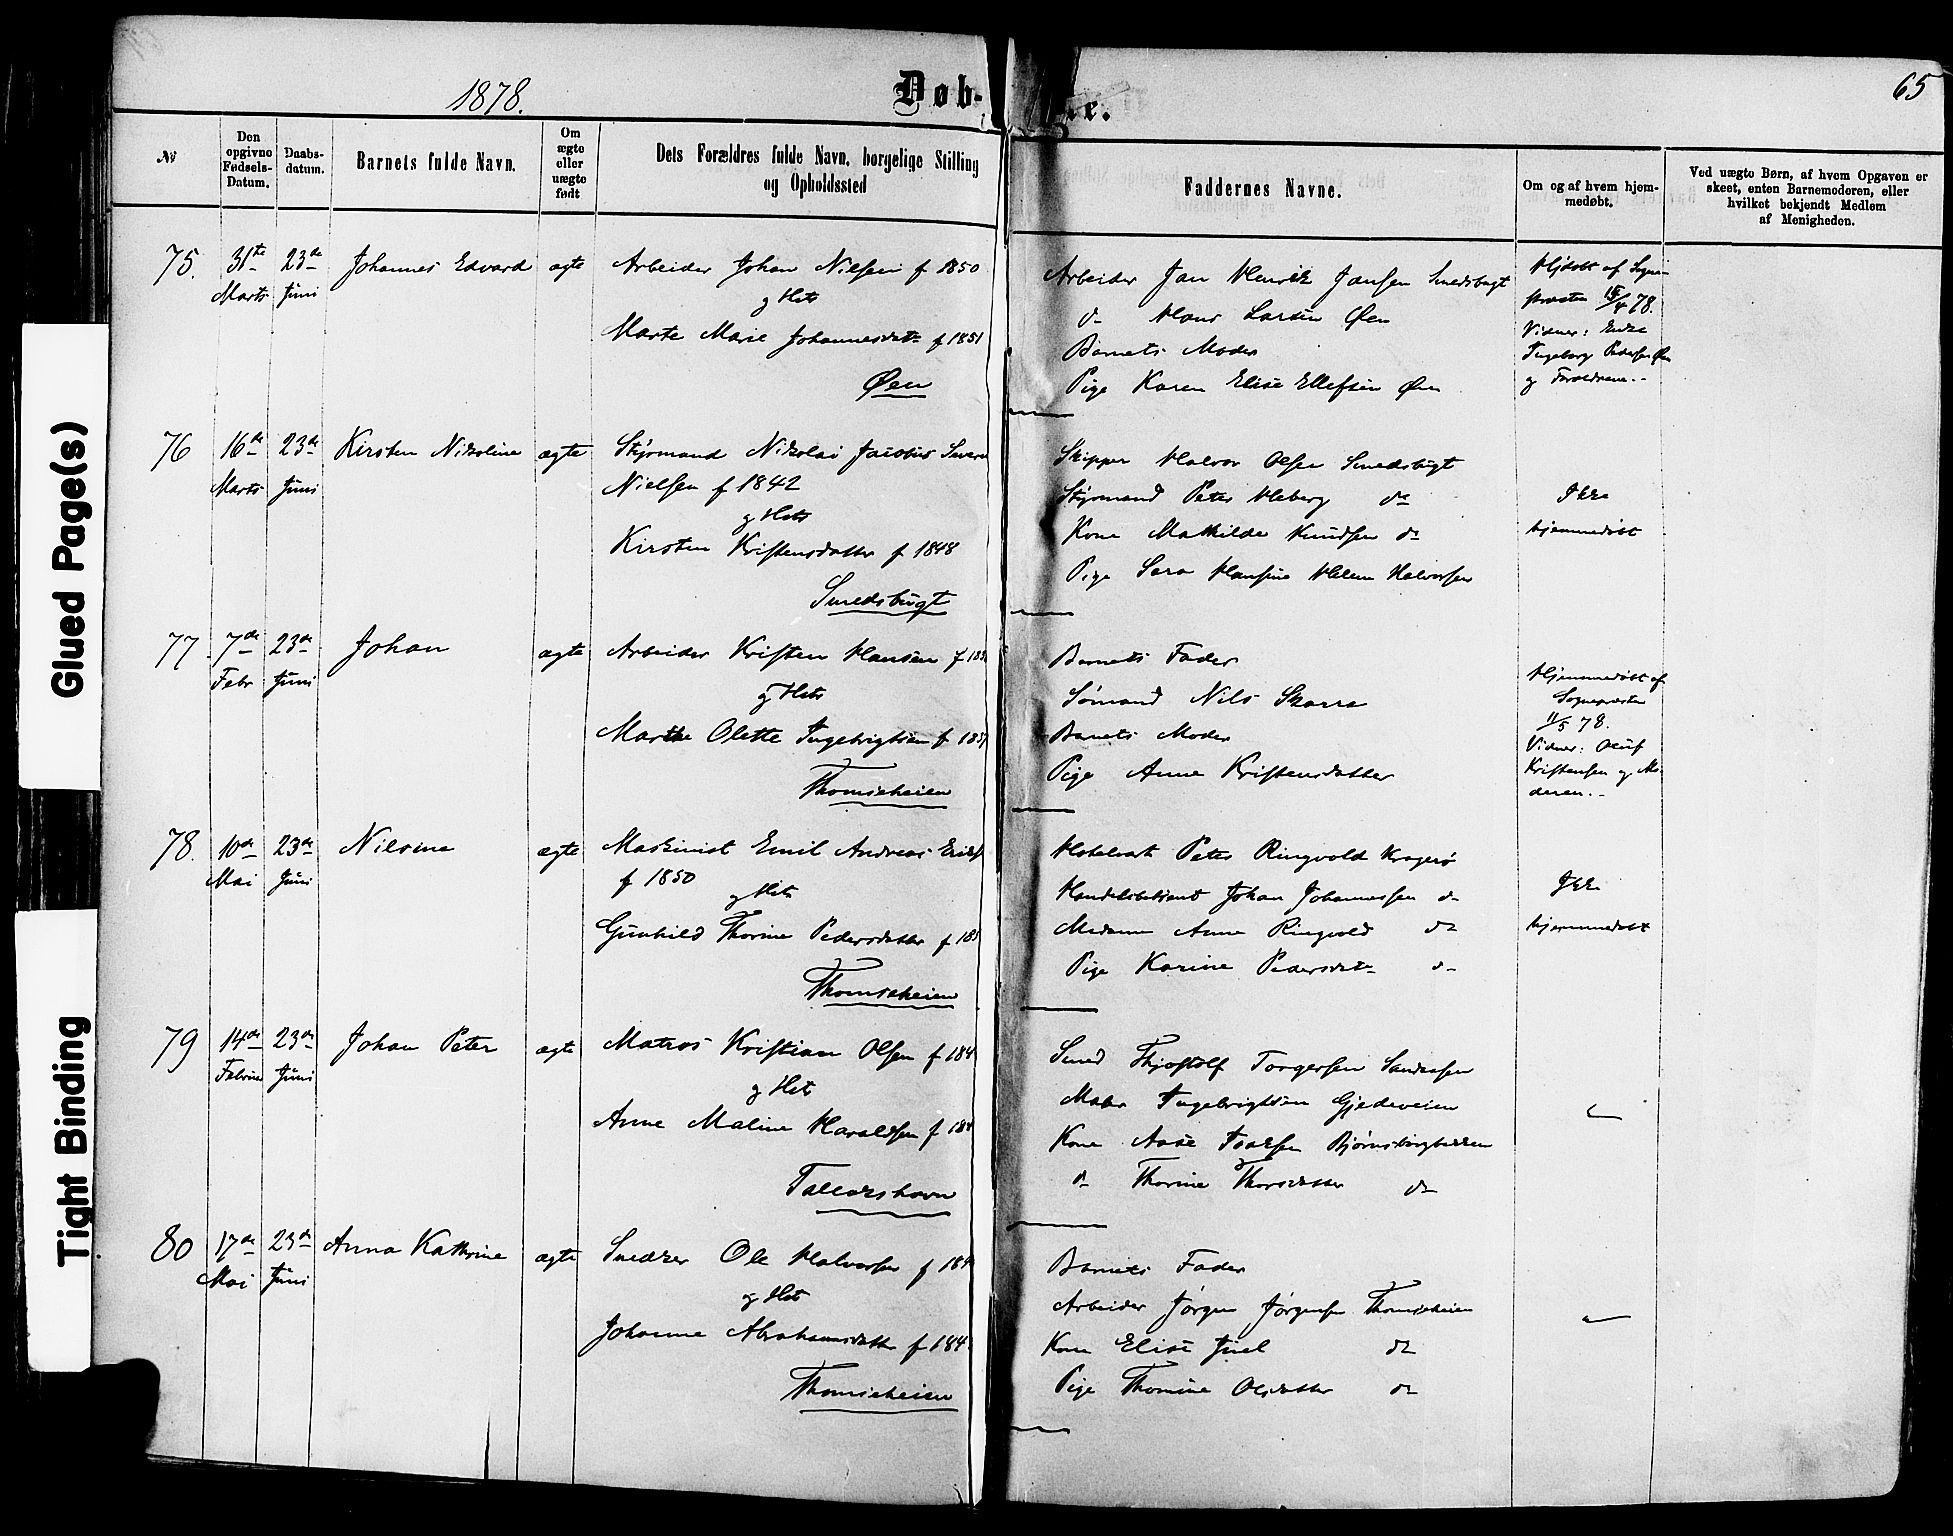 65
1878.
Døb-te.
№
Den opgivne Fødsels-Datum.
Daabs-datum.
Barnets fulde Navn.
Om ægte eller uægte født
Dets Forældres fulde Navn, borgelige Stilling
og Opholdssted
Faddernes Navne.
Om og af hvem hjem-
medøbt.
Ved uægte Børn, af hvem Opgaven er
skeet, enten Barnemoderen, eller
hvilket bekjendt Medlem
af Menigheden.
75. 31te Marts 23de Juni Johannes Edvard ægte
Arbeider Johan Nielsen f 1850
og Het
Marte Marie Johannesdatr f 1851
Øen
Arbeider Jan Henrik Jansen Smedsbugt
do Hans Larsen Øen
Barnets Moder
Pige Karen Elise Ellefsen Øen
Hjdøbt af Sogne-
præsten 15/4 78.
Vidner: Enke
Ingeborg Pedersen Øen
og Forældrene.-
76 16de Marts 23de Juni Kirsten Nikoline ægte
Styrmand Nikolai Jacobus Severin
Nielsen f 1842
og Het
Kirsten Kristensdatter f 1848
Smedsbugt
Skipper Halvor Olsen Smedsbugt
Styrmand Peter Heberg do
Kone Mathilde Knudsen do
Pige Sara Hansine Helene Halvorsen
Ikke
hjemmedøbt
77 7de Febr 23de Juni Johan ægte
Arbeider Kristen Hansen f 18
og Het
Marthe Olette Ingebrigtsen f 185
Thomseheien
Barnets Fader
Sømand Nils Skarre
Barnets Moder
Pige Anne Kristensdatter
Hjemmedøbt af
Sognepræsten
11/5 78.
Vidner: Oluf
Kristensen og Mo-
deren.-
78. 10de Mai 23de Juni Nilsine ægte
Maskinist Emil Andreas Eriks
f 1850
og Het
Gunhild Thorine Pedersdatter f 185
Thomseheien
Hotelvært Peter Ringvold Kragerø
Handelsbetjent Johan Johannessen do
Madame Anne Ringvold do
Pige Karine Pedersdatr do
Ikke
hjemmedøbt
79 14de Februar 23de Juni Johan Peter ægte
Matros Kristian Olsen f 184
og Het
Anne Maline Haraldsen f 184
Tallakshavn
Smed Thjostolf Torgersen Sandaasen
Maler Ingebrigtsen Gjedeveien
Kone Aase Isaksen Bjørnsborgbakken
do Thorine Thorsdatter do
80 17de Mai 23de Juni Anna Kathrine ægte
Snedker Ole Halvorsen f 184
og Het
Johanne Abrahamsdatter f 184
Thomseheien
Barnets Fader
Arbeider Jørgen Jørgensen Thomseheien
Kone Elise Juel do
Pige Thomine Olsdatter do
Glued Page(s)
Tight Binding